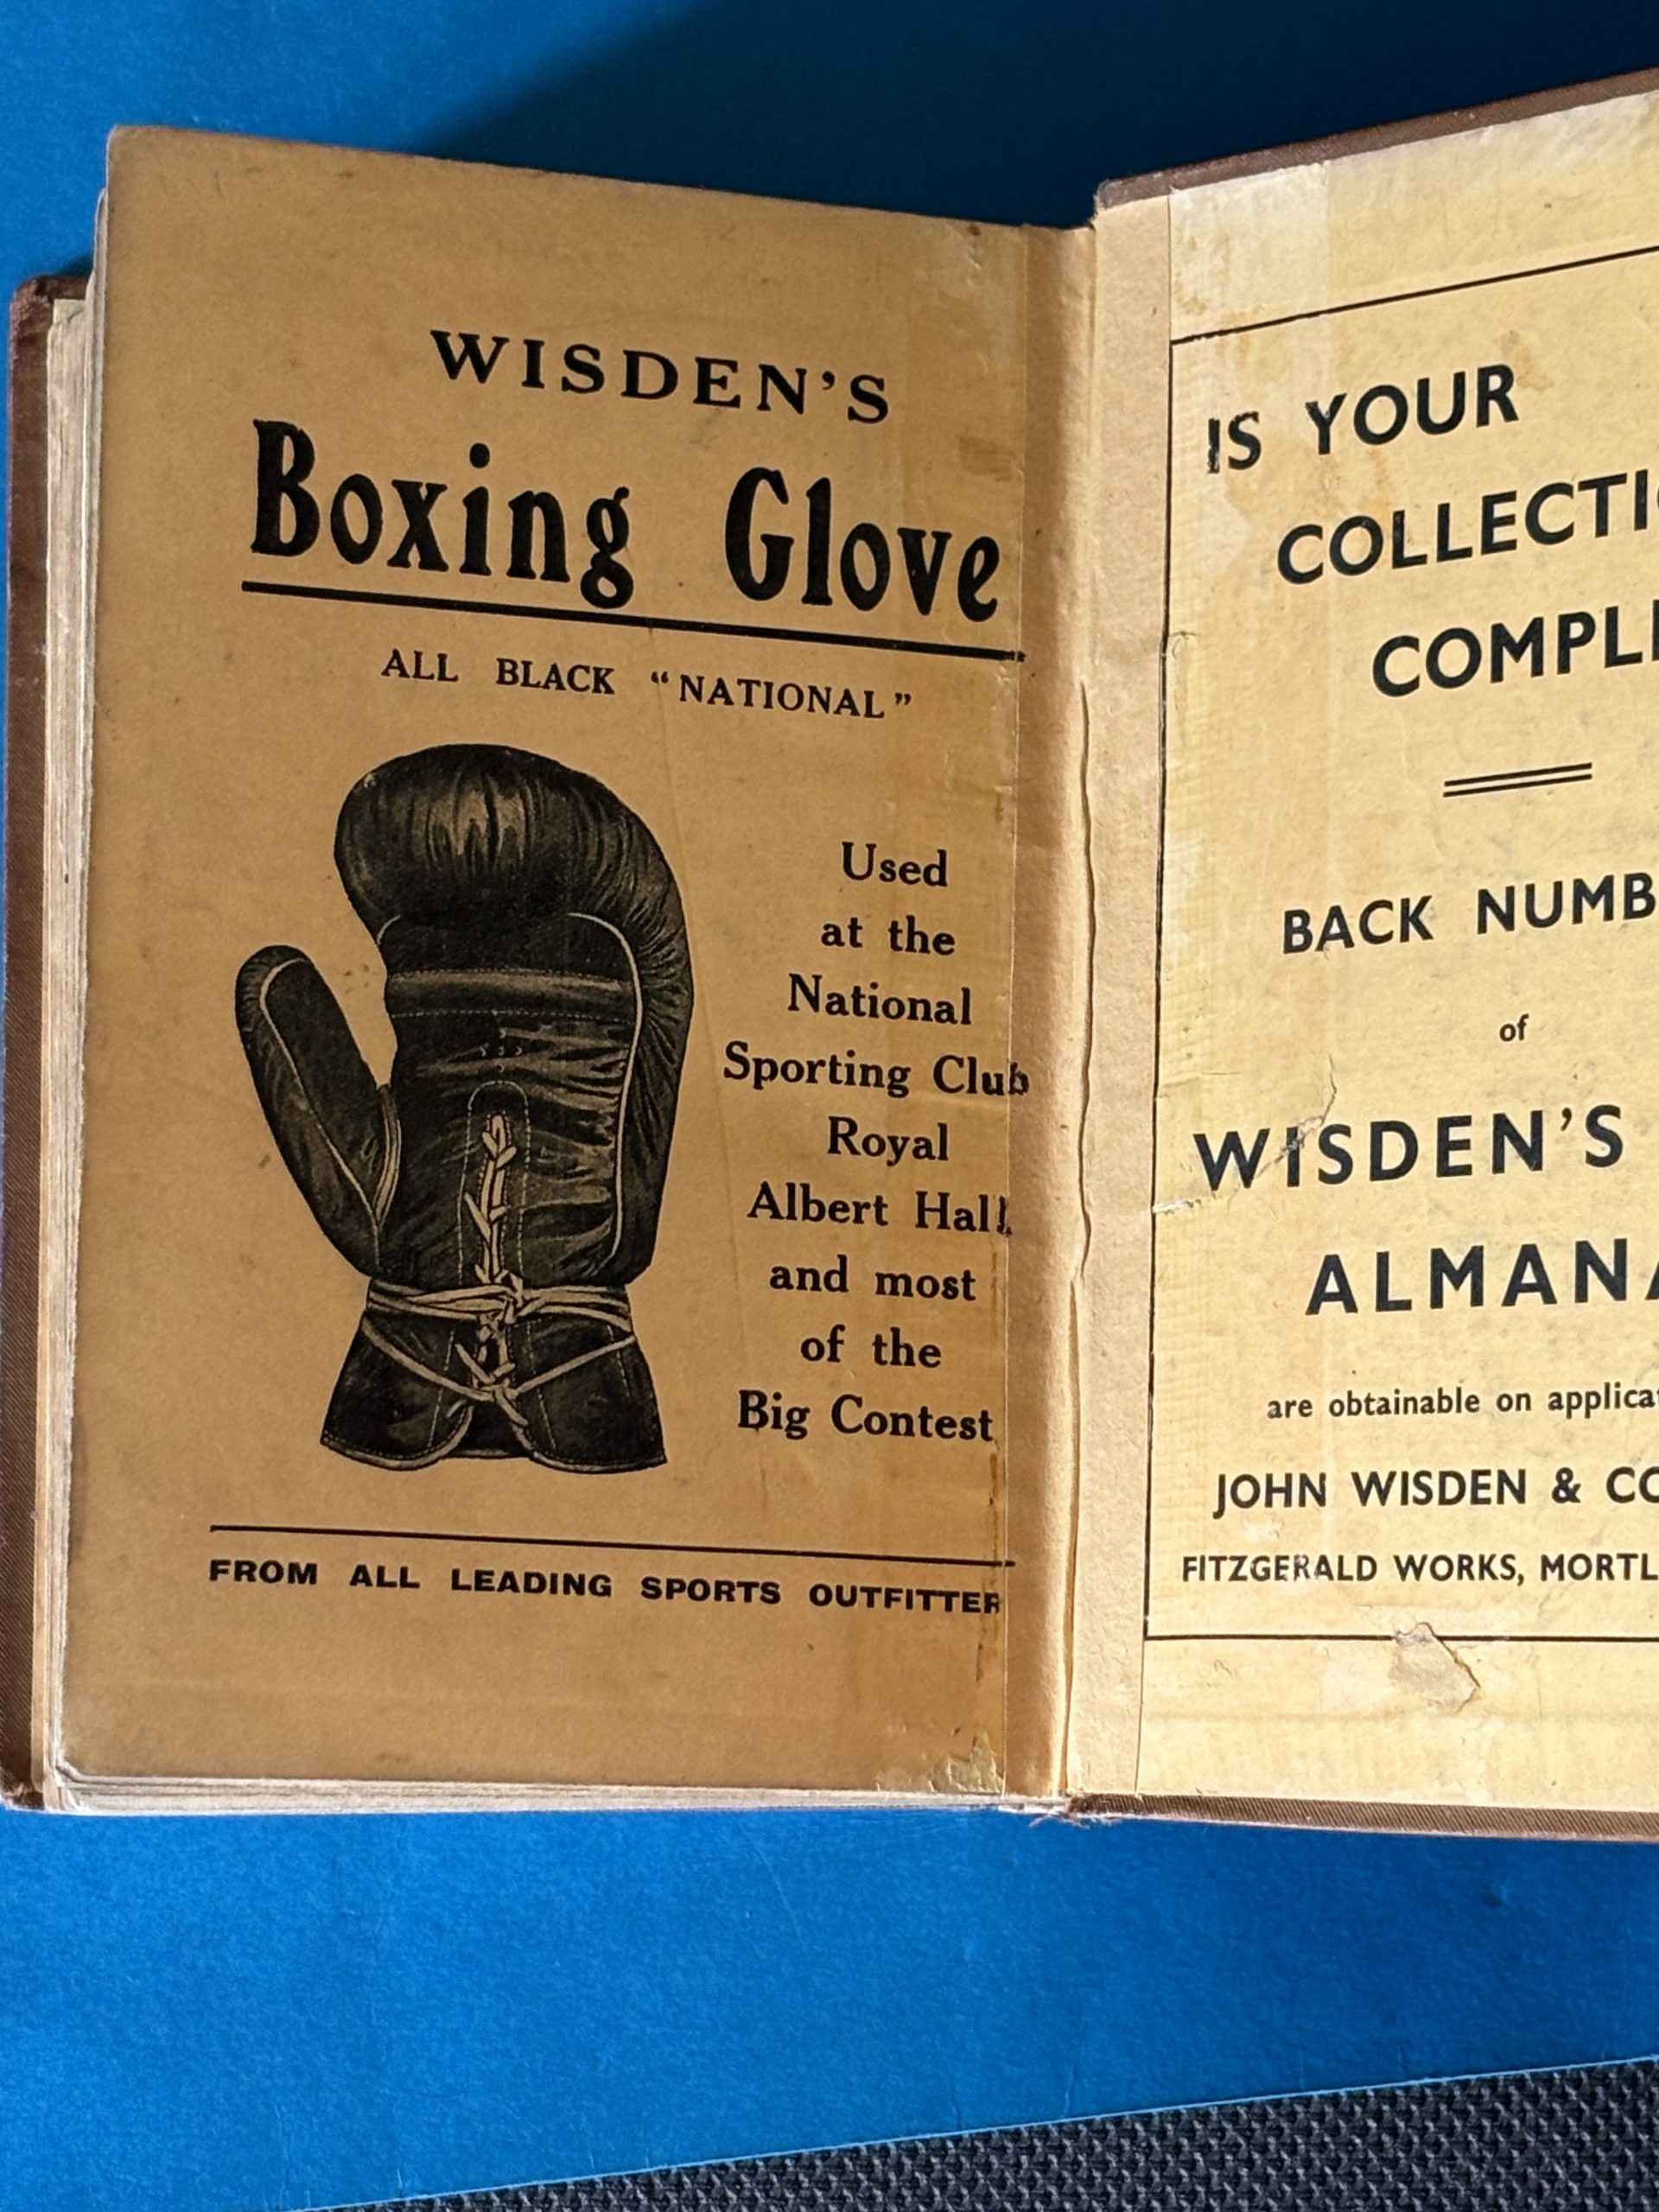 WISDEN'S
Boxing Glove
ALL BLACK "NATIONAL"
Used
at the
National
Sporting Club
Royal
Albert Hall
and most
of the
Big Contest
FROM ALL LEADING SPORTS OUTFITTER
IS YOUR
COLLECTI
COMPL
BACK NUMB
of
WISDEN'S
ALMANA
are obtainable on applica
JOHN WISDEN & CO
FITZGERALD WORKS, MORTL